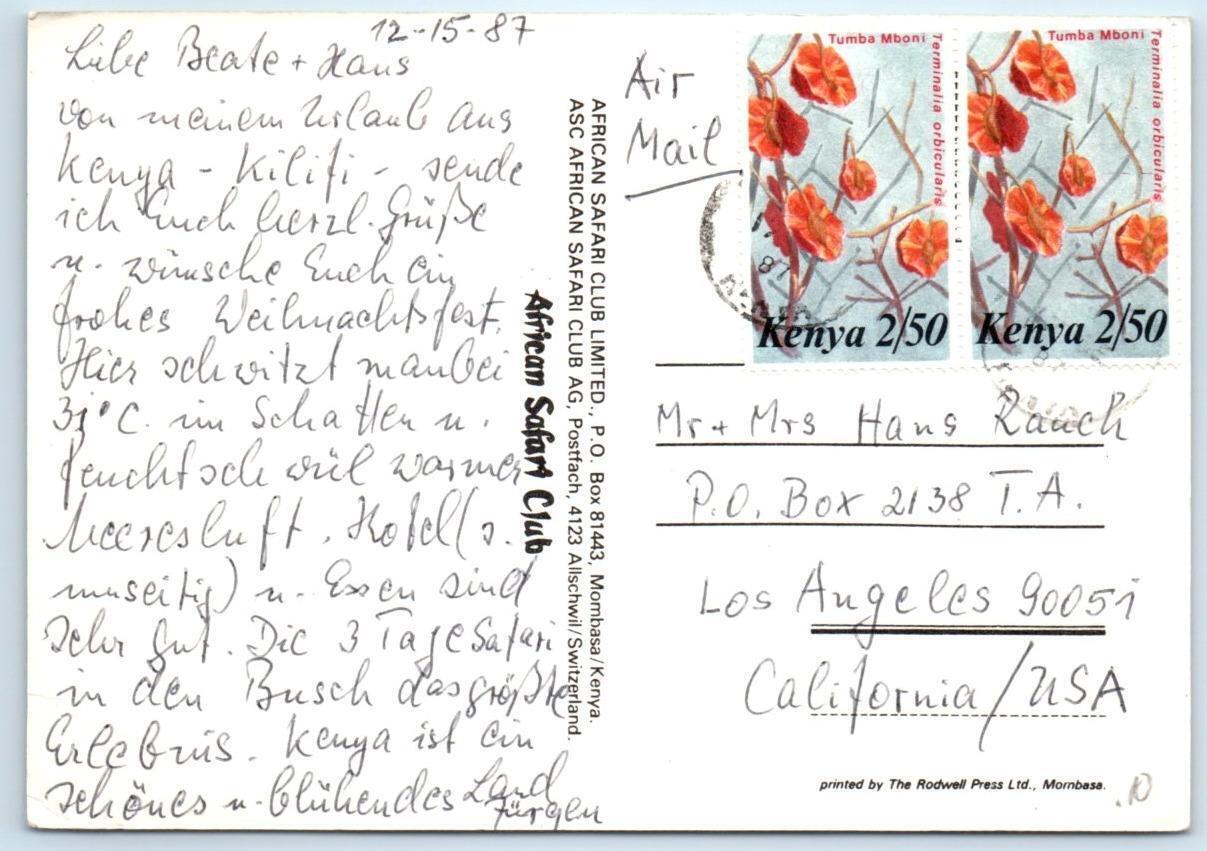 12-15-87
Liebe Beate + Hans
von meinem Urlaub aus
Kenya - Kilifi - sende
ich Euch herzl. Grüße
u. wünsche Euch ein
frohes Weihnachtsfest.
Hier schwitzt man bei
°C. im Schatten u.
feuchtschwül warmer
Meeresluft. Hotel (s.
umseitig) u. Essen sind
sehr gut. Die 3 Tage Safari
in den Busch das größte
Erlebnis. Kenya ist ein
schönes u. blühendes Land
Jürgen
African Safari Club
AFRICAN SAFARI CLUB LIMITED., P.O. Box 81443, Mombasa/Kenya.
ASC AFRICAN SAFARI CLUB AG, Postfach, 4123 Allschwil/Switzerland.
Air
Mail
Tumba Mboni
Terminalia orbicularis
Kenya 2/50
Tumba Mboni
Terminalia orbicularis
Kenya 2/50
Mr + Mrs Hans Rauch
P.O. Box 2138 T.A.
Los Angeles 90051
California/USA
printed by The Rodwell Press Ltd., Mombasa.
.10